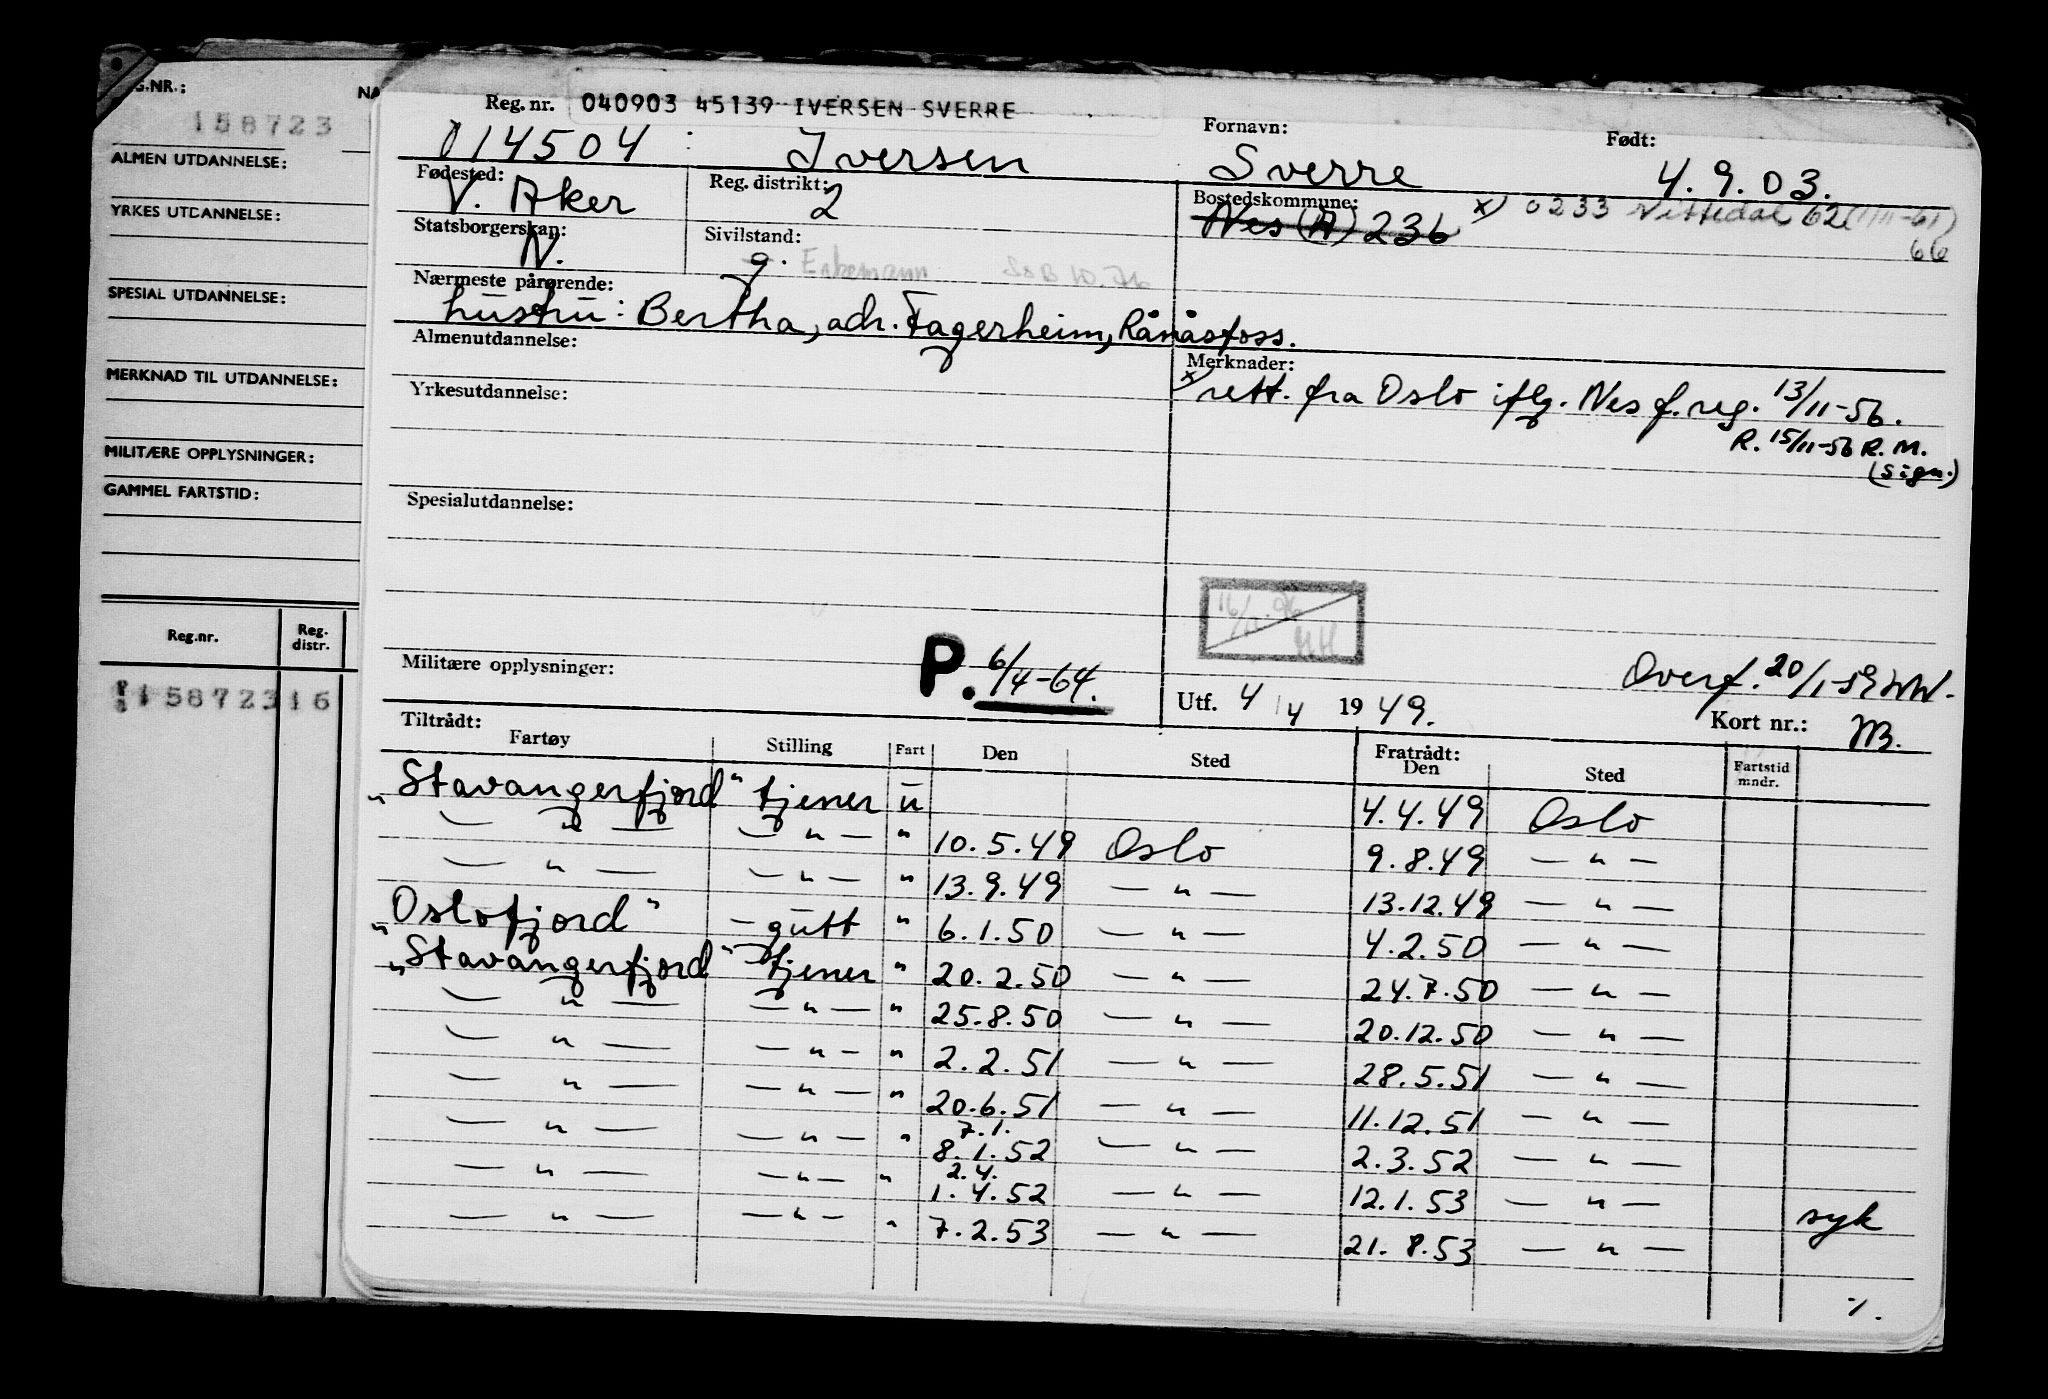 G.NR.:
NA
158723
ALMEN UTDANNELSE:
YRKES UTDANNELSE:
SPESIAL UTDANNELSE:
MERKNAD TIL UTDANNELSE:
MILITÆRE OPPLYSNINGER:
GAMMEL FARTSTID:
Reg.nr. Reg. distr.
158723 16
Reg. nr. 040903 45139 IVERSEN SVERRE
Fornavn: Født:
014504 : Iversen Sverre 4.9.03.
Fødested: Reg. distrikt: Bostedskommune:
V. Aker 2 Nes (A) 236 x) 0233 Nittedal 62 (1/11-61)
66
Statsborgerskap: Sivilstand:
N. g. Enkemann
Nærmeste pårørende:
hustru: Bertha, adr. Fagerheim, Rånåsfoss.
Almenutdannelse: Merknader:
x) rett. fra Oslo iflg. Nes f.reg. 13/11-56.
R. 15/11-56 R. M.
(sign.)
Yrkesutdannelse:
Spesialutdannelse:
Militære opplysninger: P. 6/4-64.
Overf. 20/1-59 WW.
Utf. 4/4 1949. Kort nr.:
Tiltrådt: Fratrådt:
Fartøy Stilling Fart Den Sted Den Sted Fartstid mndr.
"Stavangerfjord" tjener u 4.4.49 Oslo
— " — — " — " 10.5.49 Oslo 9.8.49 — " —
— " — — " — " 13.9.49 — " — 13.12.49 — " —
"Oslofjord" — gutt " 6.1.50 — " — 4.2.50 — " —
"Stavangerfjord" tjener " 20.2.50 — " — 24.7.50 — " —
— " — — " — " 25.8.50 — " — 20.12.50 — " —
— " — — " — " 2.2.51 — " — 28.5.51 — " —
— " — — " — " 20.6.51 — " — 11.12.51 — " —
7.1.
— " — — " — " 8.1.52 — " — 2.3.52 — " —
2.4.
— " — — " — " 1.4.52 — " — 12.1.53 — " — syk
— " — — " — " 7.2.53 — " — 21.8.53 — " —
./.